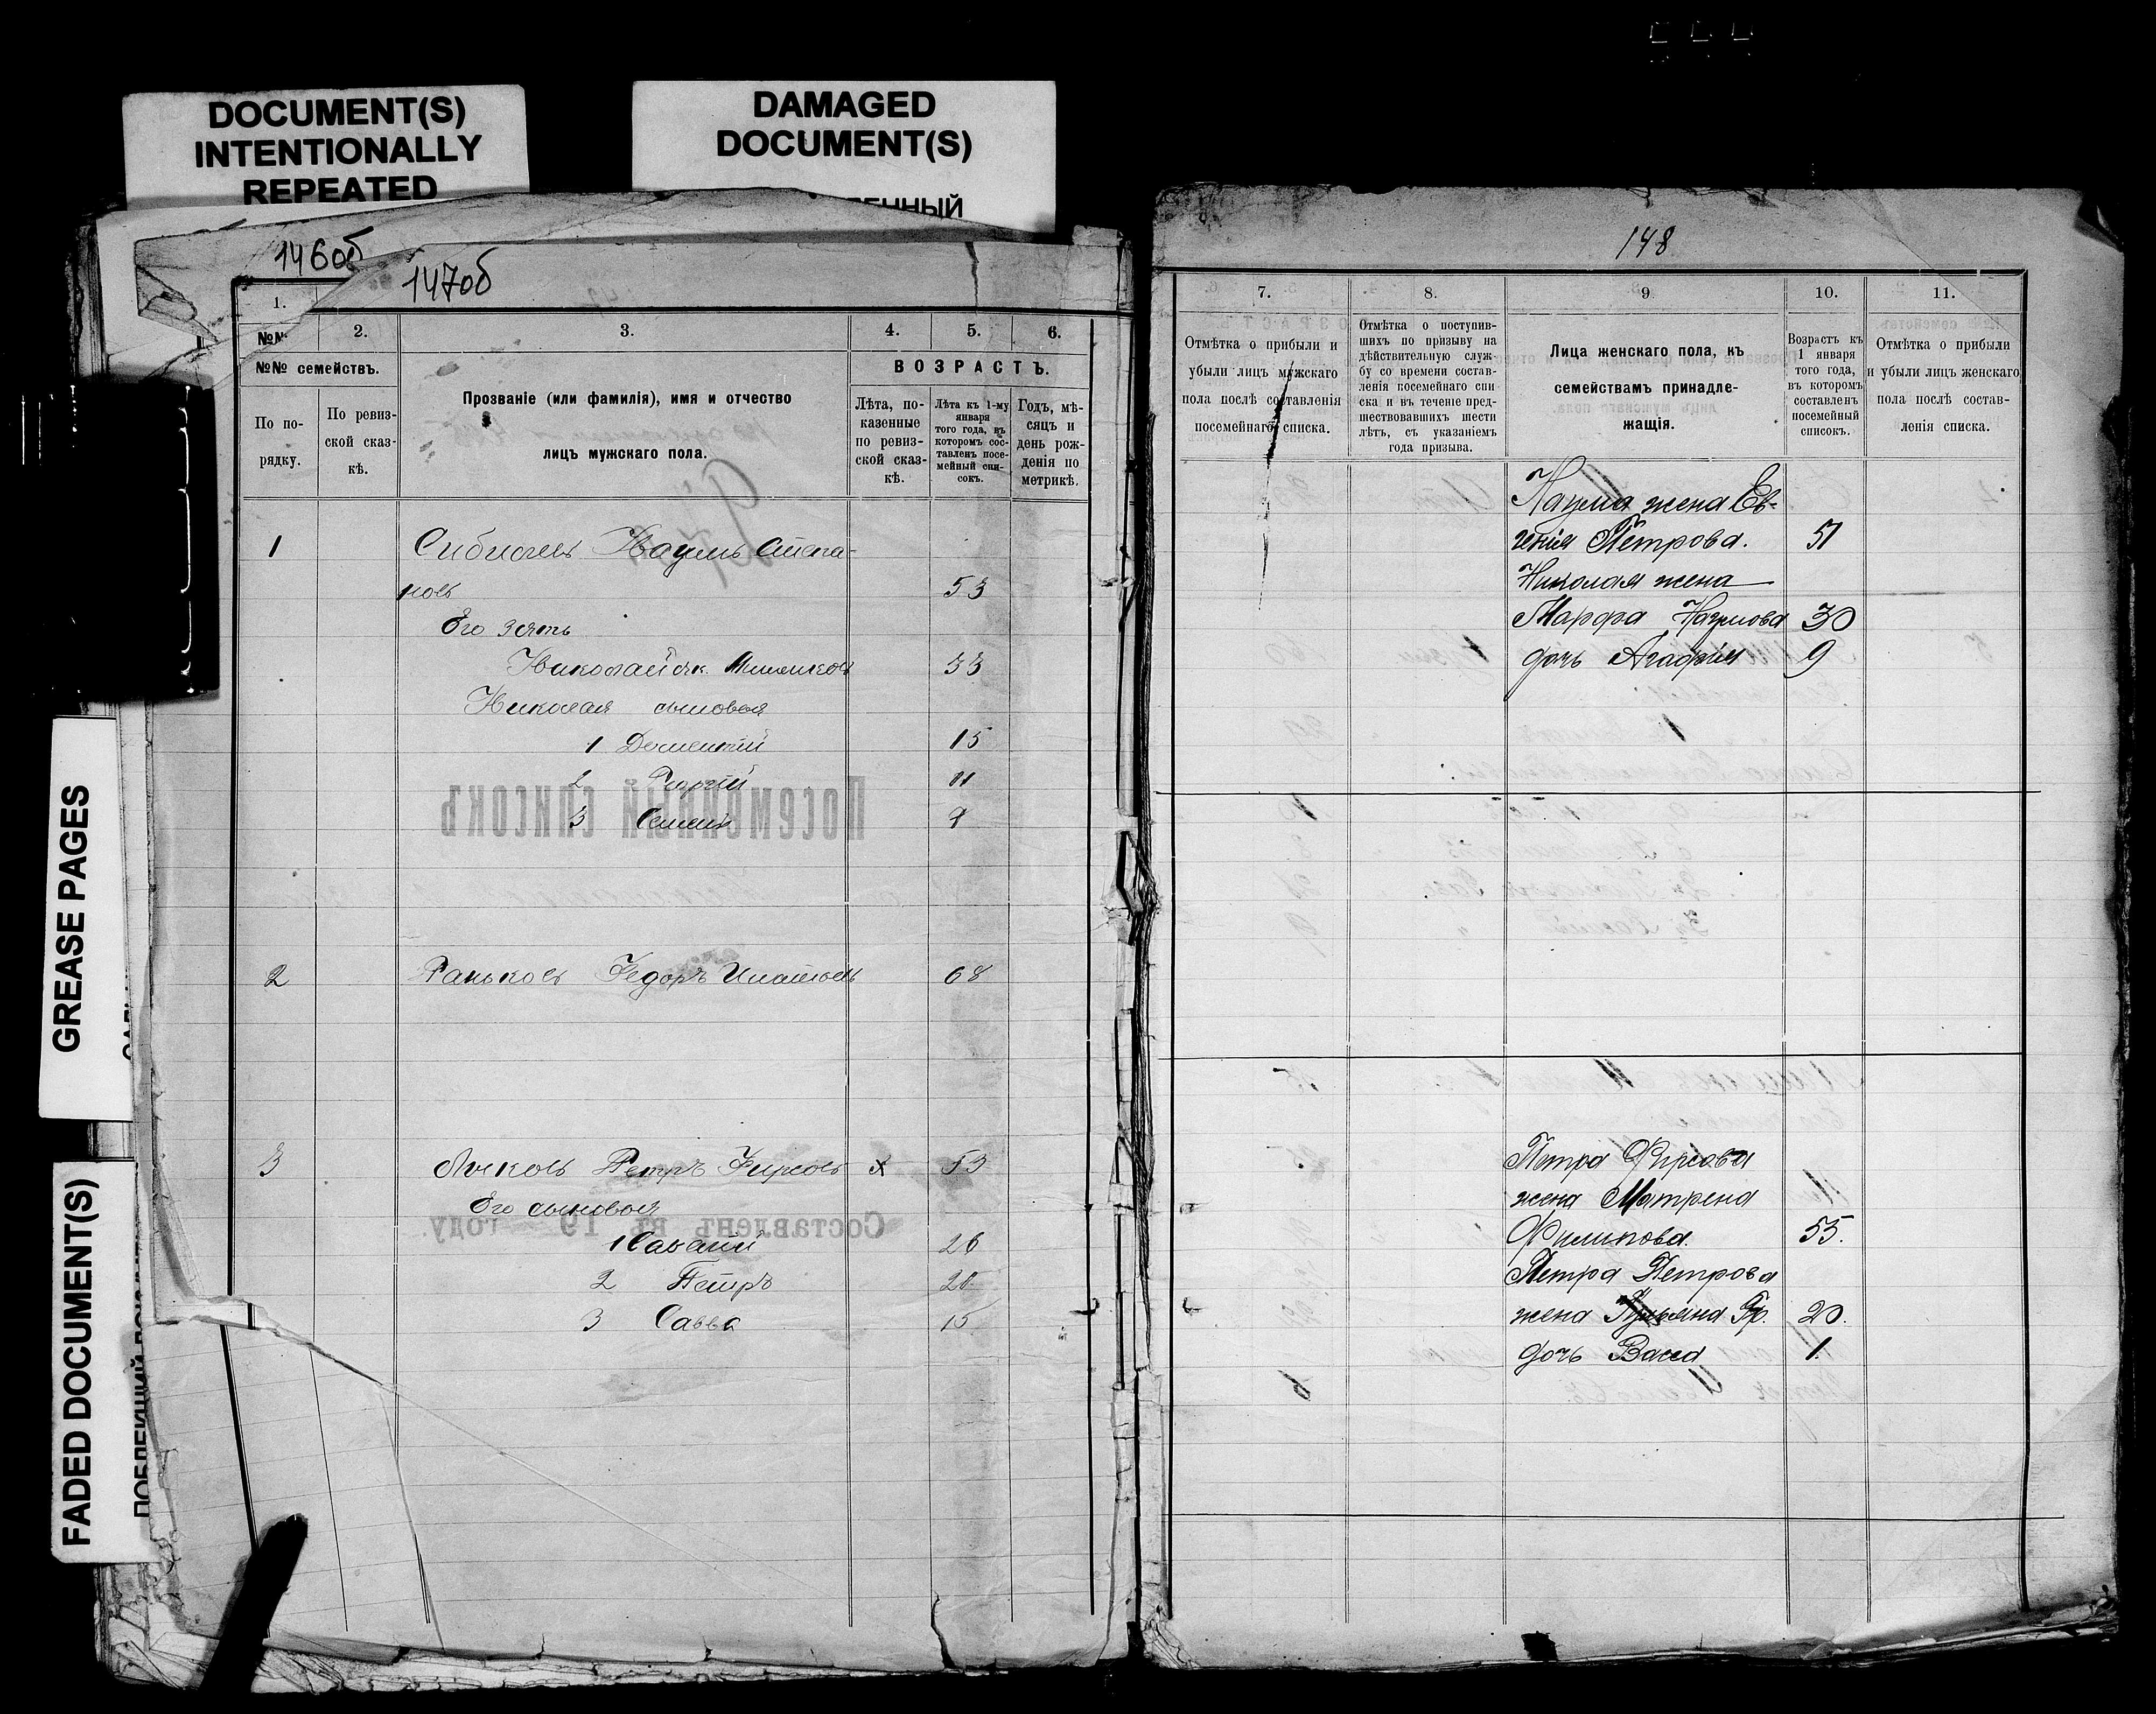 DOCUMENT(S)
INTENTIONALLY
REPEATED
DAMAGED
DOCUMENT(S)
ЕННЫЙ
GREASE PAGES
FADED DOCUMENT(S)
146об
147об
1.
№№
2.
3.
4.
5.
6.
№№ семействъ.
ВОЗРАСТЪ.
По по-
рядку.
По ревиз-
ской сказ-
кѣ.
Прозваніе (или фамилія), имя и отчество
лицъ мужскаго пола.
Лѣта, по-
казенные
по ревиз-
ской сказ-
кѣ.
Лѣта къ 1-му
января
того года, въ
которомъ сос-
тавленъ посе-
мейный спи-
сокъ.
Годъ, мѣ-
сяцъ и
день рож-
денія по
метрикѣ.
1
Наумъ Степа-
новъ 53
Его зять
Николай 33
Николая сыновья
1 Дементій 15
2 Георгій 11
3 Семенъ
2 Ѳедоръ 68
3 Петръ Фирсовъ х 53
Его сыновья
1 Саватій 26
2 Петръ
3 Савва 15
Посемейный списокъ
Составленъ въ 19 году.
148
7.
8.
9.
10.
11.
Отмѣтка о прибыли и
убыли лицъ мужскаго
пола послѣ составленія
посемейнаго списка.
Отмѣтка о поступив-
шихъ по призыву на
дѣйствительную служ-
бу со времени состав-
ленія посемейнаго спи
ска и въ теченіе пред-
шествовавшихъ шести
лѣтъ, съ указаніемъ
года призыва.
Лица женскаго пола, къ
семействамъ принадле-
жащія.
Возрастъ къ
1 января
того года,
въ которомъ
составленъ
посемейный
списокъ.
Отмѣтка о прибыли
и убыли лицъ женскаго
пола послѣ состав-
ленія списка.
Наума жена Ев-
генія Петрова. 51
Николая жена
Марфа Наумова 30
дочь Агафия 9
Петра Фирсова
жена Матрена
Филипова. 55.
Петра Петрова
жена Гр. 20.
дочь Васса 1.